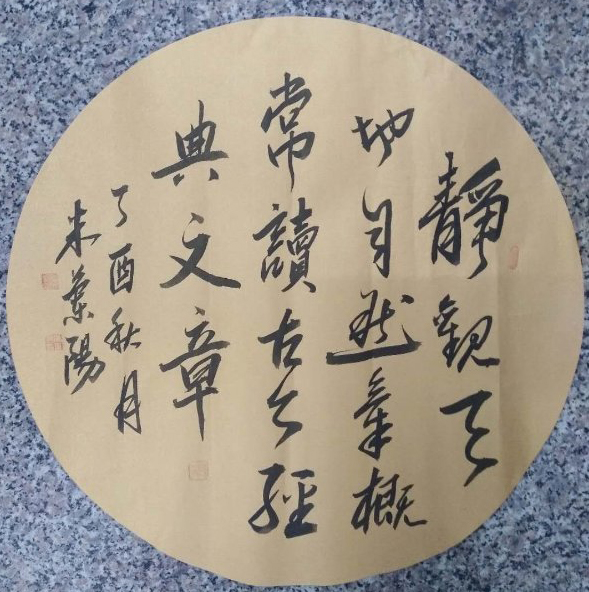 靜觀天
地自然氣概
常讀古今經
典文章
丁酉秋月
陽